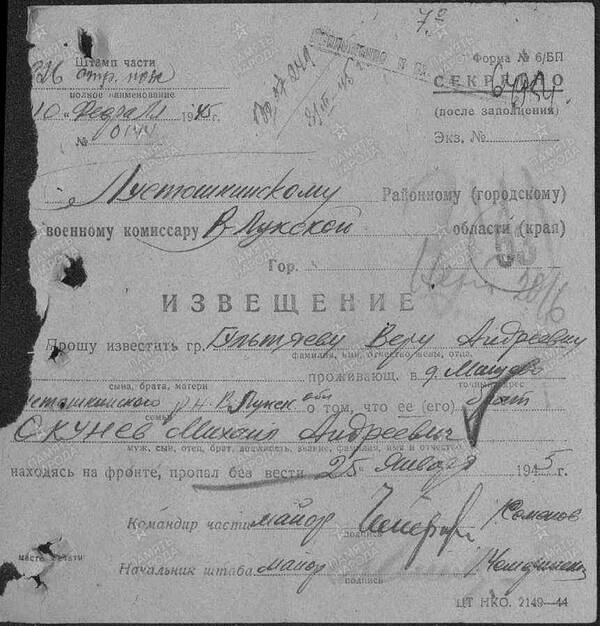 7°
Штамп части
Форма № 6/БП
стр. полк
полное наименование
СЕКРЕТНО
10 „Февраля 1945 г.
(после заполнения)
№ 0144
Экз. №
Пустошкинскому Районному (городскому)
военному комиссару В-Лукской области (края)
53
Гор.
ИЗВЕЩЕНИЕ
Прошу известить гр. Веру Андреевну
фамилия, имя, отчество жены, отца,
проживающ. в д. Мащево
сына, брата, матери
точный адрес
р-н В. Лукск. обл о том, что ее (его) брат
семьи
СКУНЕВ Михаил Андреевич
муж, сын, отец, брат, должность, звание, фамилия, имя и отчество
находясь на фронте, пропал без вести 25 Января 1945 г.
Командир части майор
подпись
Начальник штаба майор
место печати
подпись
ЦТ НКО. 2149—44